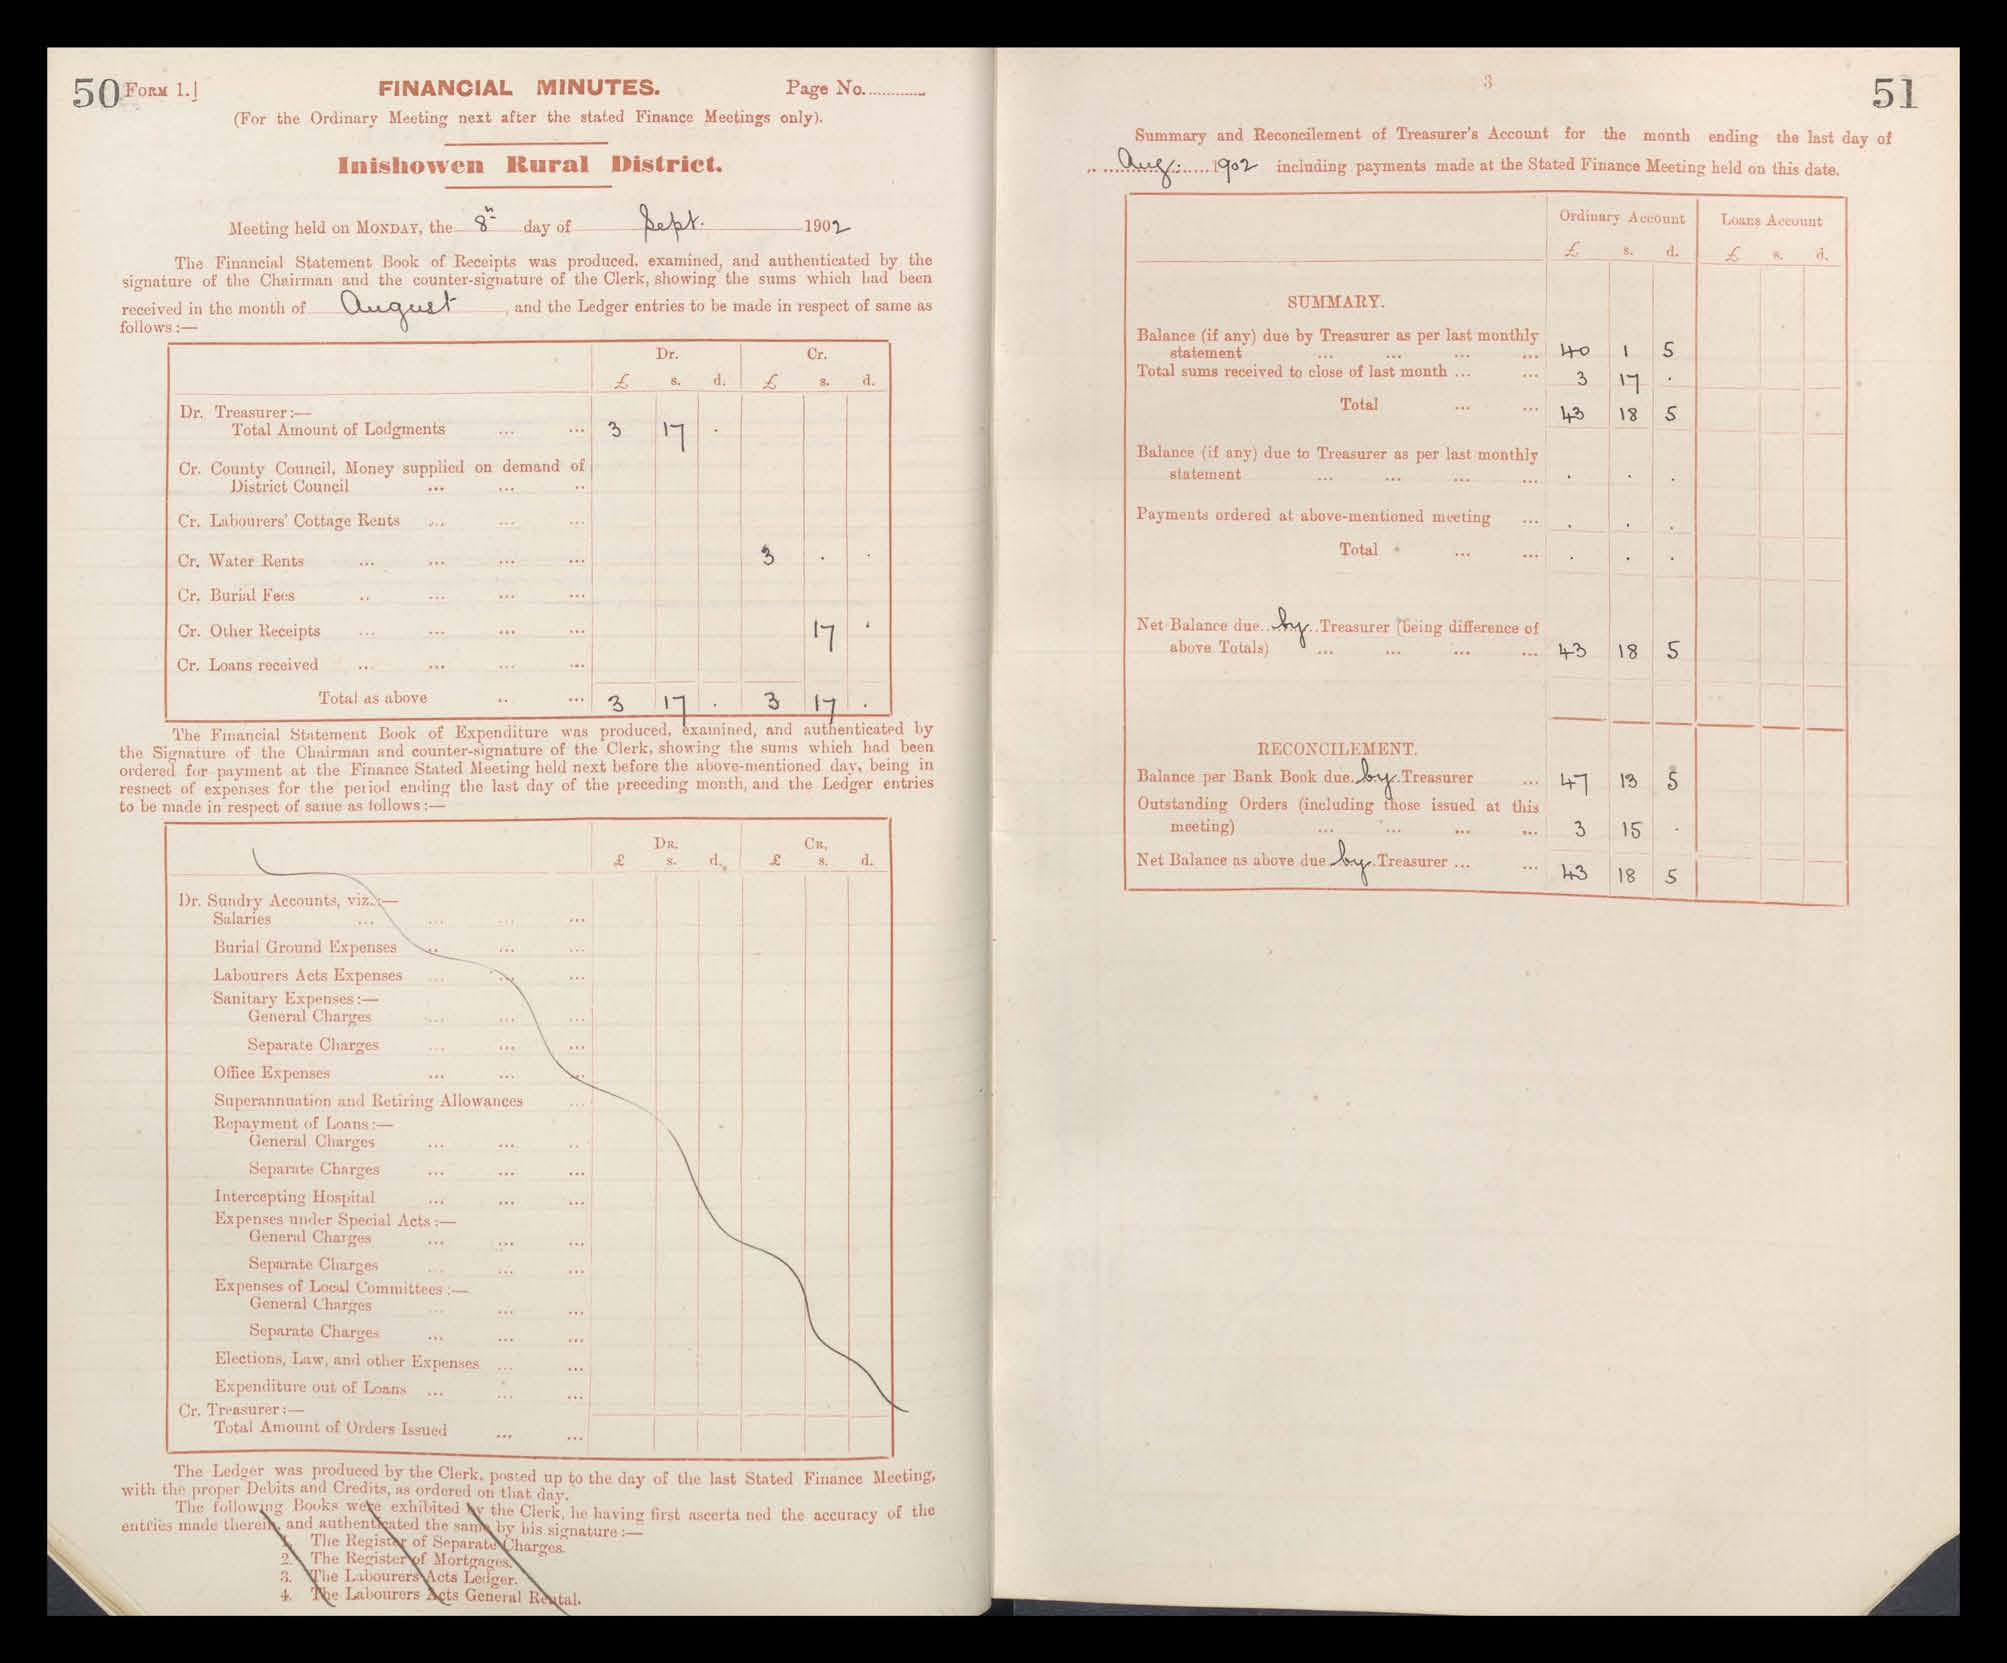 50 FORM 1.]
FINANCIAL MINUTES.
Page No.............
(For the Ordinary Meeting next after the stated Finance Meetings only).
Inishowen Rural District.
Meeting held on MONDAY, the 8th day of Sept. 1902
The Financial Statement Book of Receipts was produced, examined, and authenticated by the
signature of the Chairman and the counter-signature of the Clerk, showing the sums which had been
received in the month of August, and the Ledger entries to be made in respect of same as
follows:—
Dr. Cr.
£ s. d. £ s. d.
Dr. Treasurer:—
Total Amount of Lodgments ... ... 3 17 .
Cr. County Council, Money supplied on demand of
District Council ... ... ..
Cr. Labourers' Cottage Rents ... ... ...
Cr. Water Rents ... ... ... ... 3 . .
Cr. Burial Fees .. ... ... ...
Cr. Other Receipts ... ... ... ... 17 .
Cr. Loans received ... ... ... ...
Total as above .. ... 3 17 . 3 17 .
The Financial Statement Book of Expenditure was produced, examined, and authenticated by
the Signature of the Chairman and counter-signature of the Clerk, showing the sums which had been
ordered for payment at the Finance Stated Meeting held next before the above-mentioned day, being in
respect of expenses for the period ending the last day of the preceding month, and the Ledger entries
to be made in respect of same as follows:—
DR. CR.
£ s. d. £ s. d.
Dr. Sundry Accounts, viz.:—
Salaries ... ... ... ...
Burial Ground Expenses ... ... ...
Labourers Acts Expenses ... ... ...
Sanitary Expenses:—
General Charges ... ... ...
Separate Charges ... ... ...
Office Expenses ... ... ...
Superannuation and Retiring Allowances ...
Repayment of Loans:—
General Charges ... ... ..
Separate Charges ... ... ...
Intercepting Hospital ... ... ...
Expenses under Special Acts:—
General Charges ... ... ...
Separate Charges ... ... ...
Expenses of Local Committees:—
General Charges ... ... ...
Separate Charges ... ... ...
Elections, Law, and other Expenses ... ...
Expenditure out of Loans ... ... ...
Cr. Treasurer:—
Total Amount of Orders Issued ... ...
The Ledger was produced by the Clerk, posted up to the day of the last Stated Finance Meeting,
with the proper Debits and Credits, as ordered on that day.
The following Books were exhibited by the Clerk, he having first ascerta ned the accuracy of the
entries made therein, and authenticated the same by his signature:—
1. The Register of Separate Charges.
2. The Register of Mortgages.
3. The Labourers Acts Ledger.
4. The Labourers Acts General Rental.
3
51
Summary and Reconcilement of Treasurer's Account for the month ending the last day of
Aug: 1902 including payments made at the Stated Finance Meeting held on this date.
Ordinary Account Loans Account
£ s. d. £ s. d.
SUMMARY.
Balance (if any) due by Treasurer as per last monthly
statement ... ... ... ... 40 1 5
Total sums received to close of last month ... ... 3 17 .
Total ... ... 43 18 5
Balance (if any) due to Treasurer as per last monthly
statement ... ... ... ... . . .
Payments ordered at above-mentioned meeting ... . . .
Total ... ... . . .
Net Balance due by Treasurer (being difference of
above Totals) ... ... ... ... 43 18 5
RECONCILEMENT.
Balance per Bank Book due by Treasurer ... 47 13 5
Outstanding Orders (including those issued at this
meeting) ... ... ... ... 3 15 .
Net Balance as above due by Treasurer ... ... 43 18 5